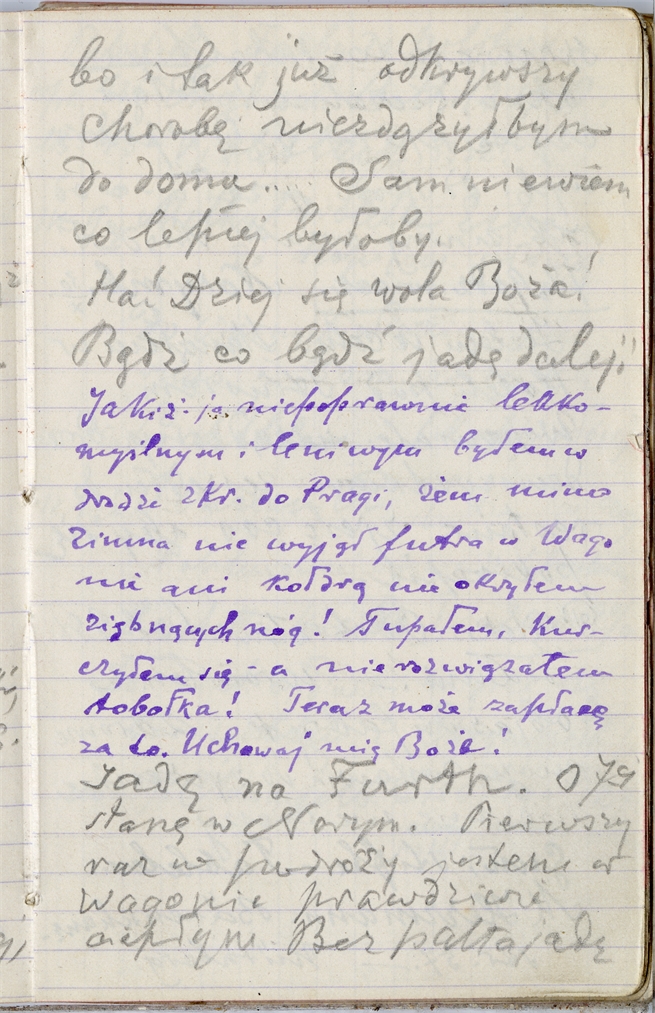 bo i tak już odkrywszy
chorobę niezdązyłbym
do domu.... Sam niewiem
co lepiej byłoby.
Ha! Dziej się wola Boża!
Bądź co bądź jadę dalej!
Jakiż ja niepoprawnie lekko-
myślnym i leniwym byłem w
drodze z Kr. do Pragi, żem mimo
zimna nie wyjął futra w Wago
nie ani kołdrą nie okryłem
ziębnących nóg! Tupałem, kur-
czyłem się - a nie rozwiązałem
tobołka! Teraz może zapłacę
za to. Uchowaj mię Boże!
Jadę na Furth. O 7ej
stanę w Norym. Pierwszy
raz w podróży jestem w
wagonie prawdziwie
ciepłym. Bez palta jadę